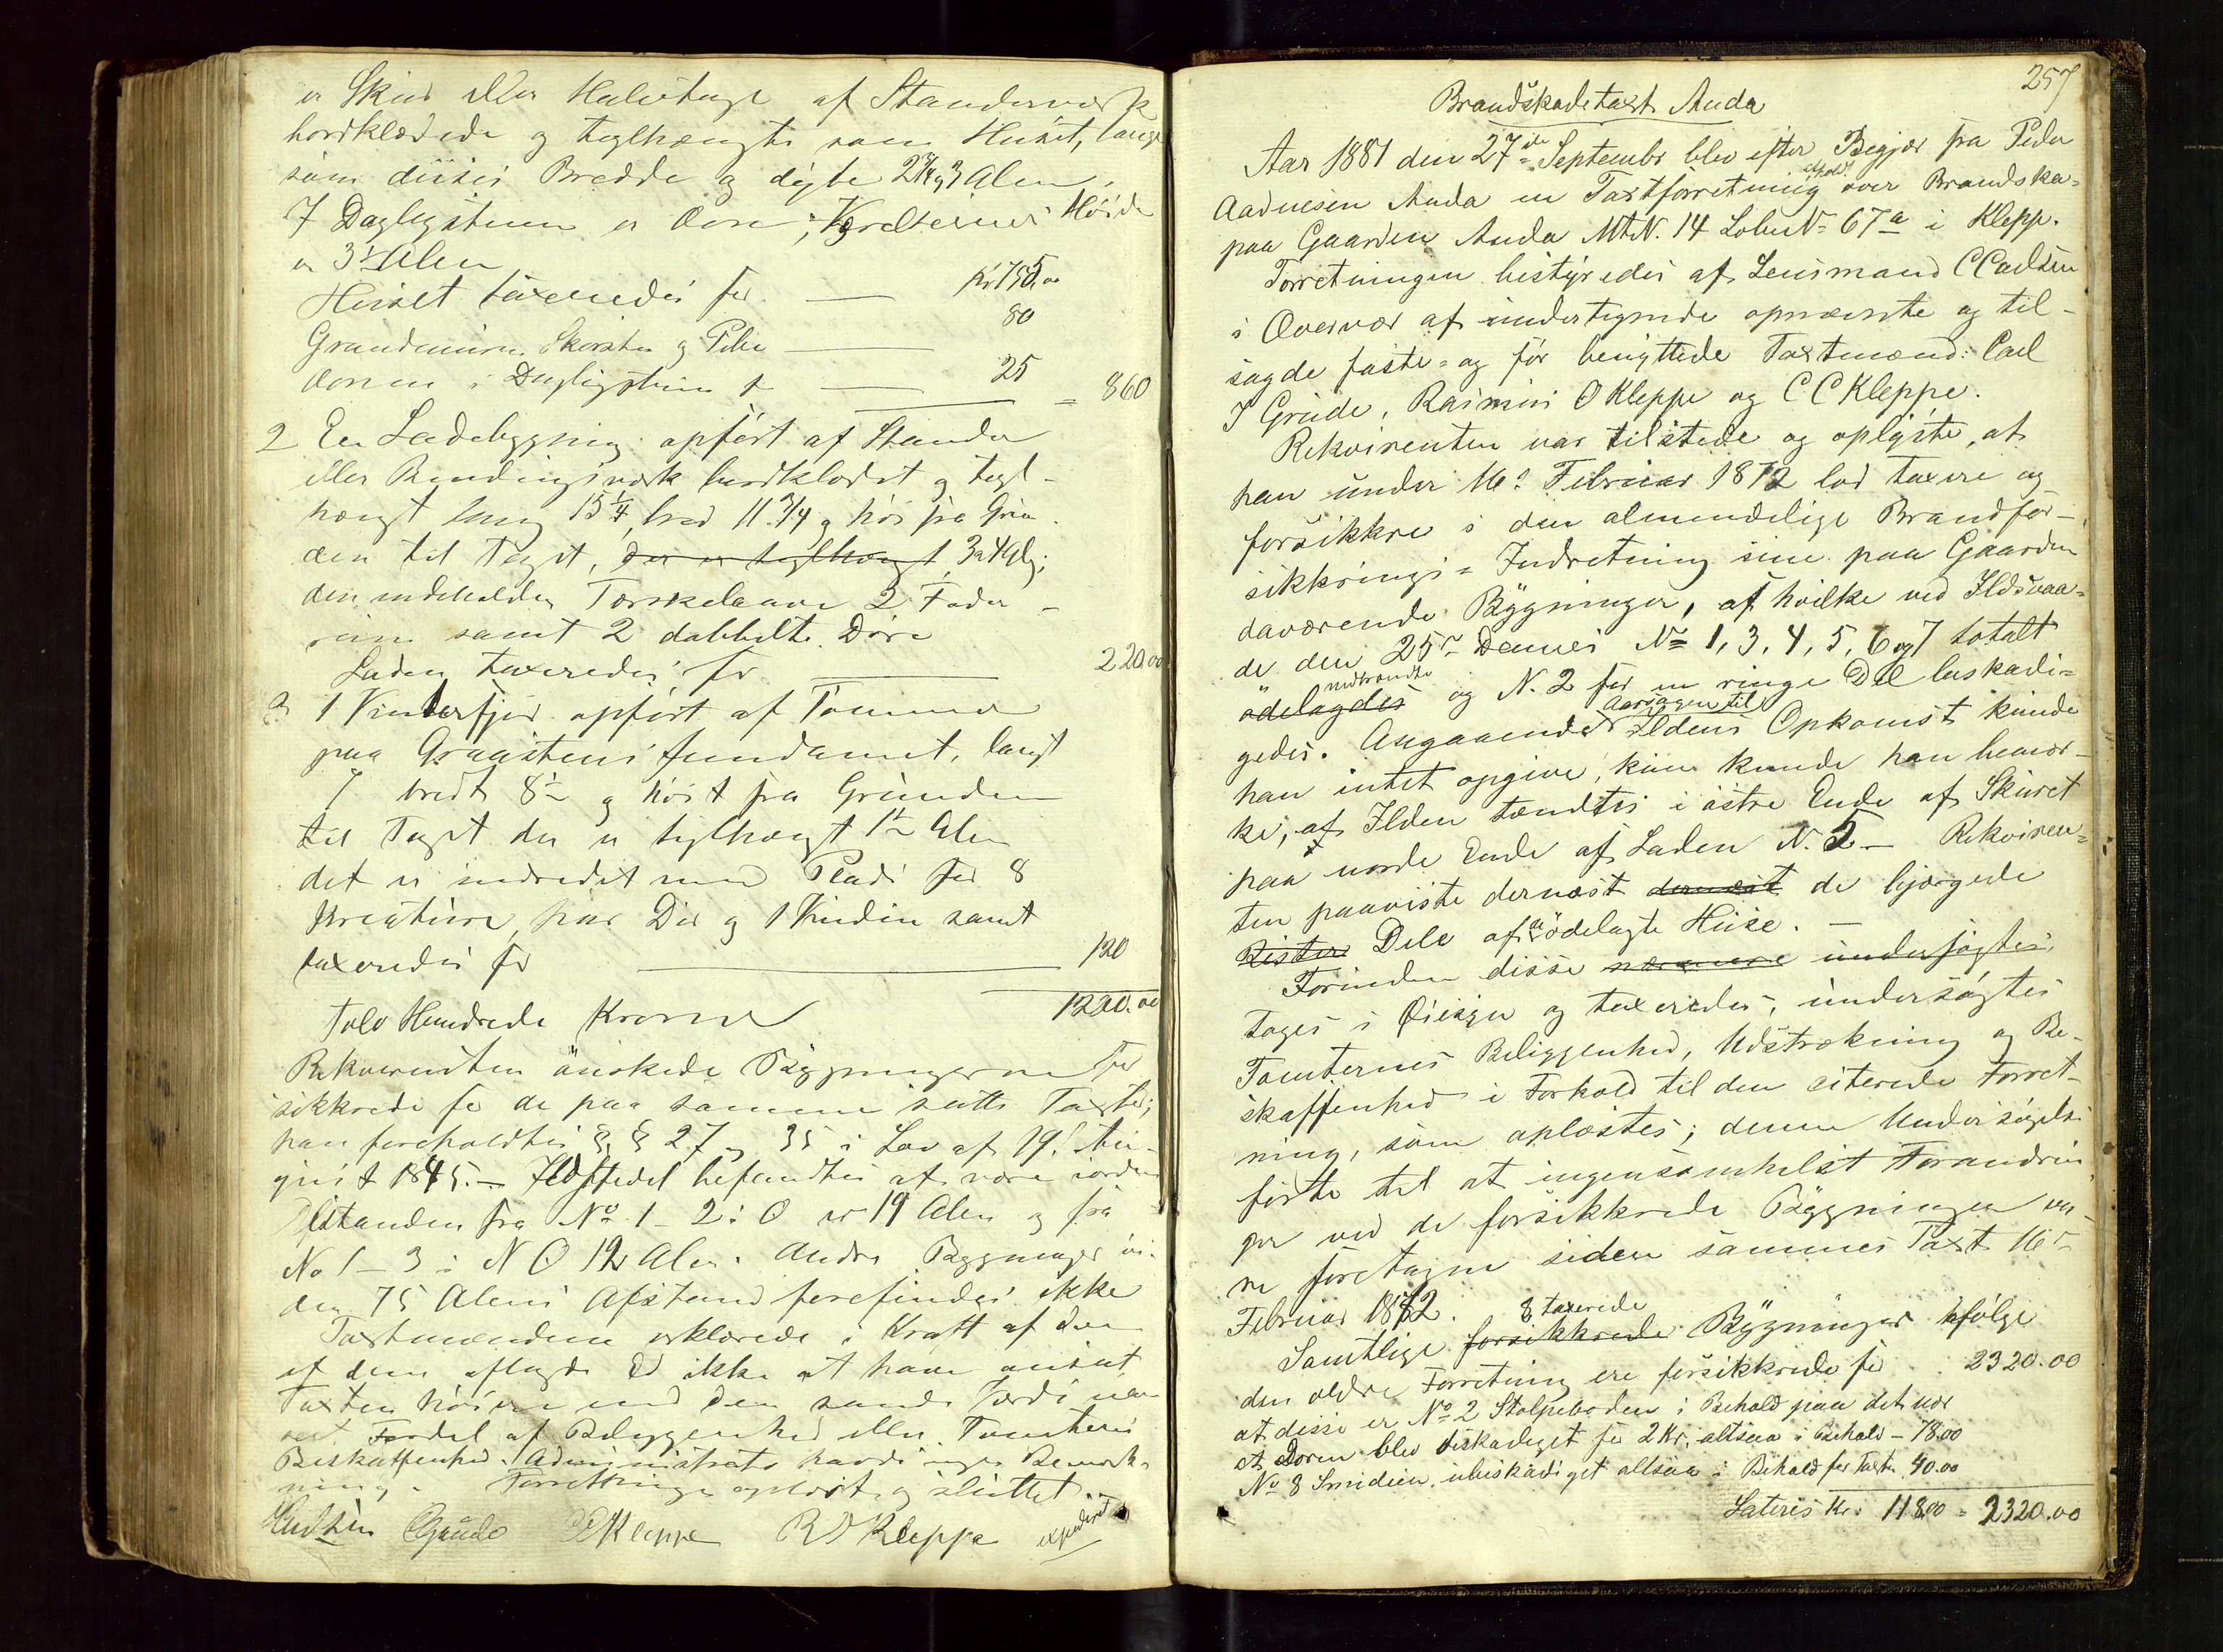 er Skur eller Halvtage af Standerværk
bordklædede og teglhængte som Huset, lange
som dettes Bredde og dybe 2 3/4 og 3 Alen.
I Daglegstuen er Ovn; Værelsernes Høide
er 3 1/2 Alen
Huset taxeredes for — Kr 755.00
Grundmuren, Skorsten og Pibe — 80
Ovnen i Dagligstuen for — 25 = 860
2 En Ladebygning opført af Stander
eller Bindingsværk bordklædt og tegl-
hængt lang 15 1/4, bred 11 3/4 og høi fra Grun-
den til Taget, der er teglhængt, 3 a 4 Al;
den indeholder Tærskelaave 2 Foder-
rum samt 2 dobbelte Døre
Laden taxeredes for — 220.00
3 1 Vinterfjøs opført af Tømmer
paa Graastens fundament, langt
7 bredt 8 1/2 og høit fra Grunden
til Taget der er teglhængt 1 1/2 Alen
det er indredet med Plads for 8
Kreature, har Dør og 1 Vindu samt
taxeredes for — 120
Tolv Hundrede Kroner 1200.00
Rekvirenten ønskede Bygningerne for
sikkrede for de paa samme satte Taxter;
han foreholdtes §§ 27 og 35 i Lov af 19. Au-
gust 1845. — Ildstedet befandtes at være i orden
Afstanden fra No 1 - 2 i O er 19 Alen og fra
No 1 - 3 i N O 12 Alen. Andre Bygninger in-
den 75 Alens Afstand forefindes ikke
Taxtmændene erklærede i Kraft af den
af dem aflagde Ed ikke at have ansat
Taxten høiere end den sande Værdi uan
seet Fordel af Beliggenhed eller Tomtens
Beskaffenhed. Administrator havde ingen Bemærk-
ning. Forretningen oplæst og sluttet.
CGrude CCKleppe R O Kleppe expederet
257
Brandskadetaxt Auda
Aar 1881 den 27de Septembr blev efter Begjær fra Peder
Aadnesen Auda en Taxtforretning afholdt over Brandska-
paa Gaarden Auda MtN. 14 LøbeNo 67a i Klepp.
Forretningen bestyredes af Lensmand C Carlsen
i Overvær af undertegnede opnævnte og til-
sagde faste- og før benyttede Taxtmænd: Carl
I Grude, Rasmus O Kleppe og C C Kleppe.
Rekvirenten var tilstede og oplyste, at
han under 16. Februar 1872 lod taxere og
forsikkre i den almindelige Brandfor-
sikkrings-Indretning sine paa Gaarden
daværende Bygninger, af hvilke ved Ildsvaa-
de den 25de Dennes No 1, 3, 4, 5, 6 og 7 totalt
ødelagdes nedbrændte og N. 2 for en ringe Del beskadi-
gedes. Angaaende Aarsagen til Ildens Opkomst kunde
han intet opgive, kun kunde han bemær-
ke, at Ilden tændtes i østre Ende af Skuret
paa nordre Ende af Laden N. 5 — Rekviren-
ten paaviste dernæst dernæst de bjærgede
Rester Dele af de ødelagte Huse. —
Forinden disse nærmere undersøgtes
toges i Øiesyn og taxeredes, undersøgtes
Tomternes Beliggenhed, Udstrækning og Be-
skaffenhed i Forhold til den citerede Forret-
ning, som oplæstes; denne Undersøgelse
førte til at ingensomhelst Forandrin
ger ved de forsikkrede Bygninger va-
re foretagne siden sammes Taxt 16de
Februar 1872.
Samtlige forsikkrede 8 taxerede Bygninger ifølge
den ældre Forretning ere forsikkrede for 2320.00
at disse er No 2 Stolpeboden i Behold paa det nær
at Døren blev beskadiget for 2 Kr. altsaa i Behold - 78.00
No 8 Smidien ubeskadiget altsaa i Behold for Taxten 40.00
Lateris Kr: 118.00 = 2320.00